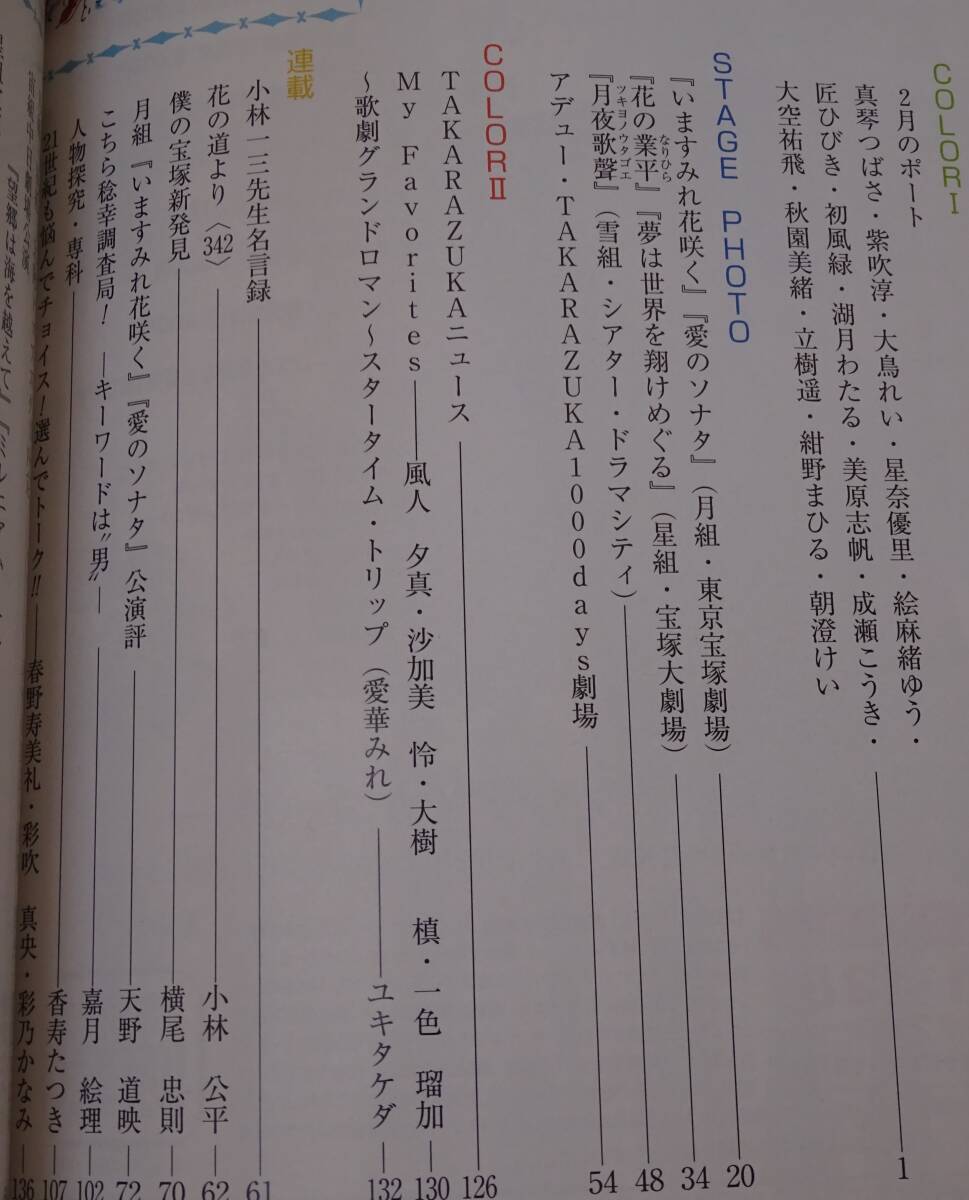 COLOR I
2月のポート
真琴つばさ・紫吹淳・大鳥れい・星奈優里・絵麻緒ゆう・
匠ひびき・初風緑・湖月わたる・美原志帆・成瀬こうき・
大空祐飛・秋園美緒・立樹遥・紺野まひる・朝澄けい
1
STAGE PHOTO
『いますみれ花咲く』『愛のソナタ』(月組・東京宝塚劇場)
20
『花の業平』『夢は世界を翔けめぐる』(星組・宝塚大劇場)
なりひら
34
『月夜歌聲』(雪組・シアター・ドラマシティ)
ツキヨノウタゴエ
48
アデュー・TAKARAZUKA1000days劇場
54
COLOR II
TAKARAZUKAニュース
126
My Favorites――風人 夕真・沙加美 怜・大樹 槙・一色 瑠加
130
~歌劇グランドロマン~スタータイム・トリップ(愛華みれ)――ユキタケダ
132
連載
小林一三先生名言録
61
花の道より〈342〉――小林 公平
62
僕の宝塚新発見――横尾 忠則
70
月組『いますみれ花咲く』『愛のソナタ』公演評――天野 道映
72
こちら稔幸調査局! ―キーワードは"男"――嘉月 絵理
102
人物探究・専科――香寿たつき
107
21世紀も悩んでチョイス!選んでトーク!!――春野寿美礼・彩吹 真央・彩乃かなみ
136
『望郷は海を越えて』